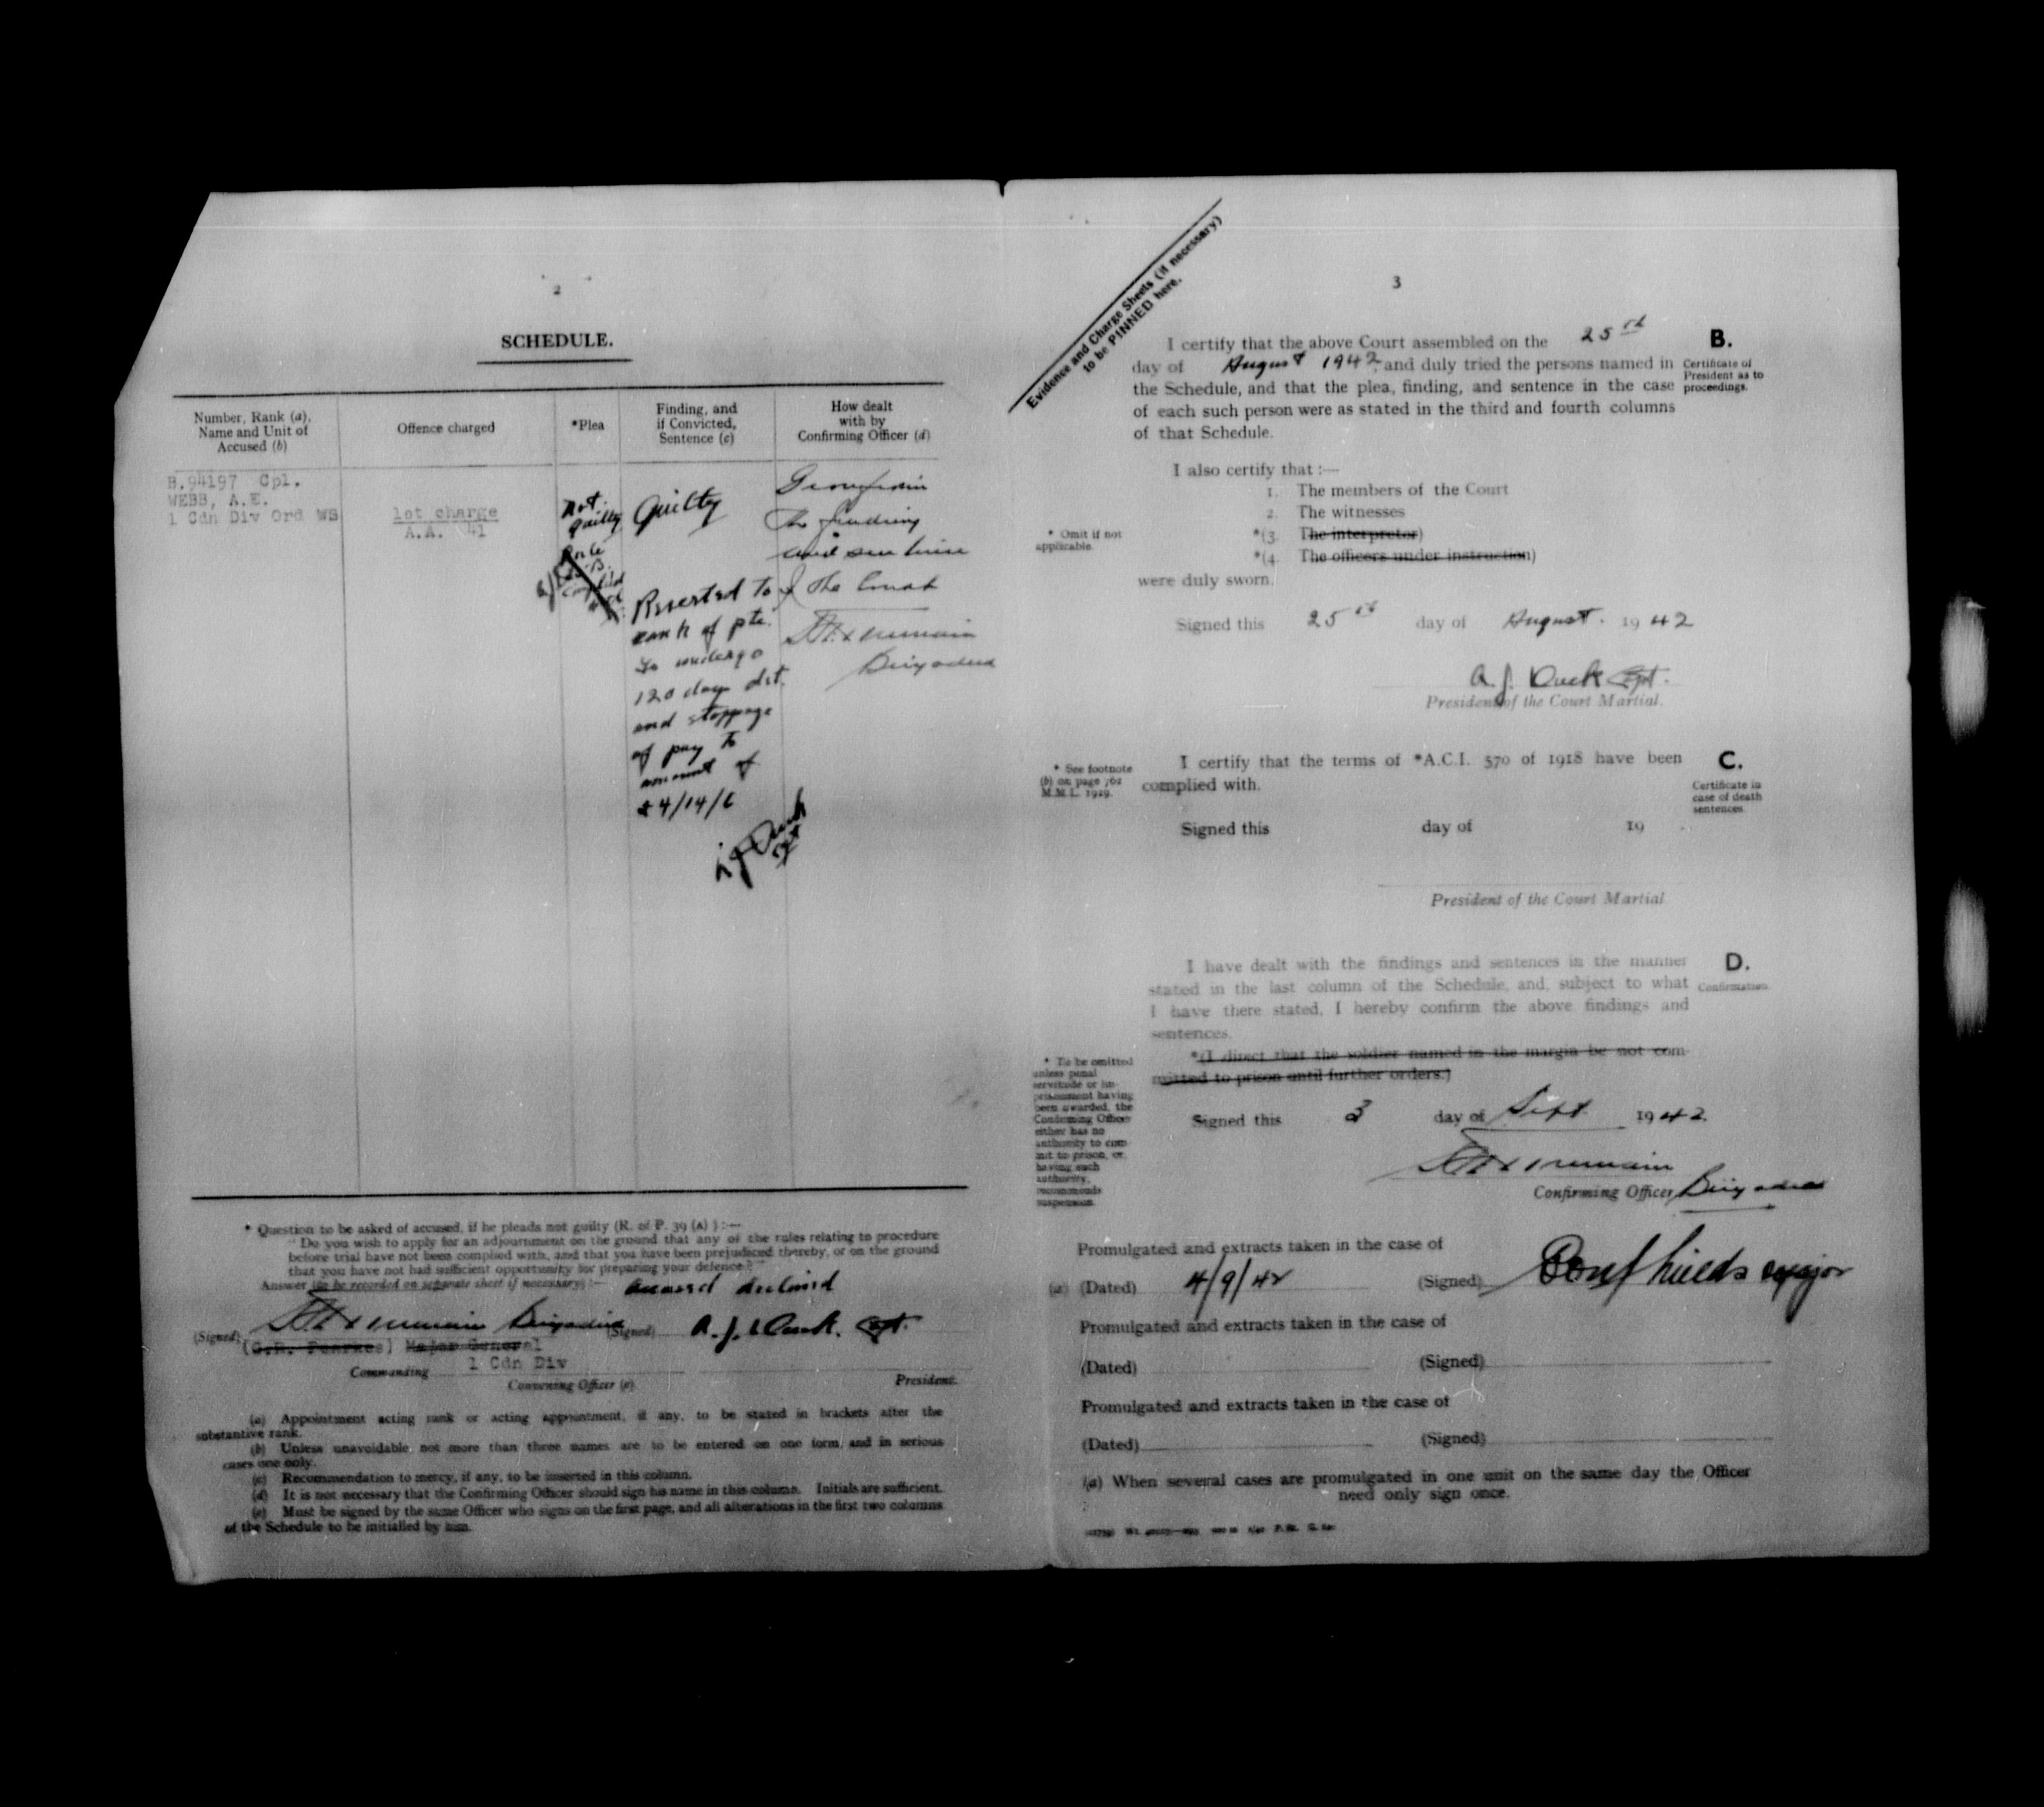 2
SCHEDULE.
Number, Rank (a), Name and Unit of Accused (b)
Offence charged
*Plea
Finding, and if Convicted, Sentence (c)
How dealt with by Confirming Officer (d)
B.94197 Cpl.
WEBB, A.E.
1 Cdn Div Ord WS
1st charge
A.A. 41
Not
guilty
Guilty
Reverted to
rank of pte.
To undergo
120 days det.
and stoppage
of pay to
amount of
£4/14/6
I confirm
the finding
and sentence
of the Court
Brigadier
* Question to be asked of accused, if he pleads not guilty (R. of P. 39 (A) ) :—
"Do you wish to apply for an adjournment on the ground that any of the rules relating to procedure
before trial have not been complied with, and that you have been prejudiced thereby, or on the ground
that you have not had sufficient opportunity for preparing your defence?"
Answer (to be recorded on separate sheet if necessary) :— accused declined
(Signed) Brigadier (Signed) A. J. Duck. Cpt.
(G.R. Pearkes) Major General
Commanding 1 Cdn Div
Convening Officer (e) President.
(a) Appointment acting rank or acting appointment, if any, to be stated in brackets after the
substantive rank.
(b) Unless unavoidable not more than three names are to be entered on one form and in serious
cases one only.
(c) Recommendation to mercy, if any, to be inserted in this column.
(d) It is not necessary that the Confirming Officer should sign his name in this column. Initials are sufficient.
(e) Must be signed by the same Officer who signs on the first page, and all alterations in the first two columns
of the Schedule to be initialled by him.
Evidence and Charge Sheets (if necessary)
to be PINNED here.
3
I certify that the above Court assembled on the 25th
day of August 1942 and duly tried the persons named in
the Schedule, and that the plea, finding, and sentence in the case
of each such person were as stated in the third and fourth columns
of that Schedule.
B.
Certificate of
President as to
proceedings.
I also certify that :—
1. The members of the Court
2. The witnesses
*(3. The interpreter)
*(4. The officers under instruction)
were duly sworn.
* Omit if not
applicable.
Signed this 25th day of August. 1942
A. J. Duck Cpt.
President of the Court Martial.
* See footnote
(b) on page 762
M.M.L. 1929.
I certify that the terms of *A.C.I. 570 of 1918 have been
complied with.
C.
Certificate in
case of death
sentences.
Signed this day of 19
President of the Court Martial
I have dealt with the findings and sentences in the manner
stated in the last column of the Schedule, and, subject to what
I have there stated, I hereby confirm the above findings and
sentences.
D.
Confirmation.
*(I direct that the soldier named in the margin be not com-
mitted to prison until further orders.)
* To be omitted
unless penal
servitude or im-
prisonment having
been awarded, the
Confirming Officer
either has no
authority to com-
mit to prison, or,
having such
authority,
recommends
suspension.
Signed this 3 day of Sept 1942.
Confirming Officer Brigadier
Promulgated and extracts taken in the case of
(a) (Dated) 4/9/42 (Signed) major
Promulgated and extracts taken in the case of
(Dated) (Signed)
Promulgated and extracts taken in the case of
(Dated) (Signed)
(a) When several cases are promulgated in one unit on the same day the Officer
need only sign once.